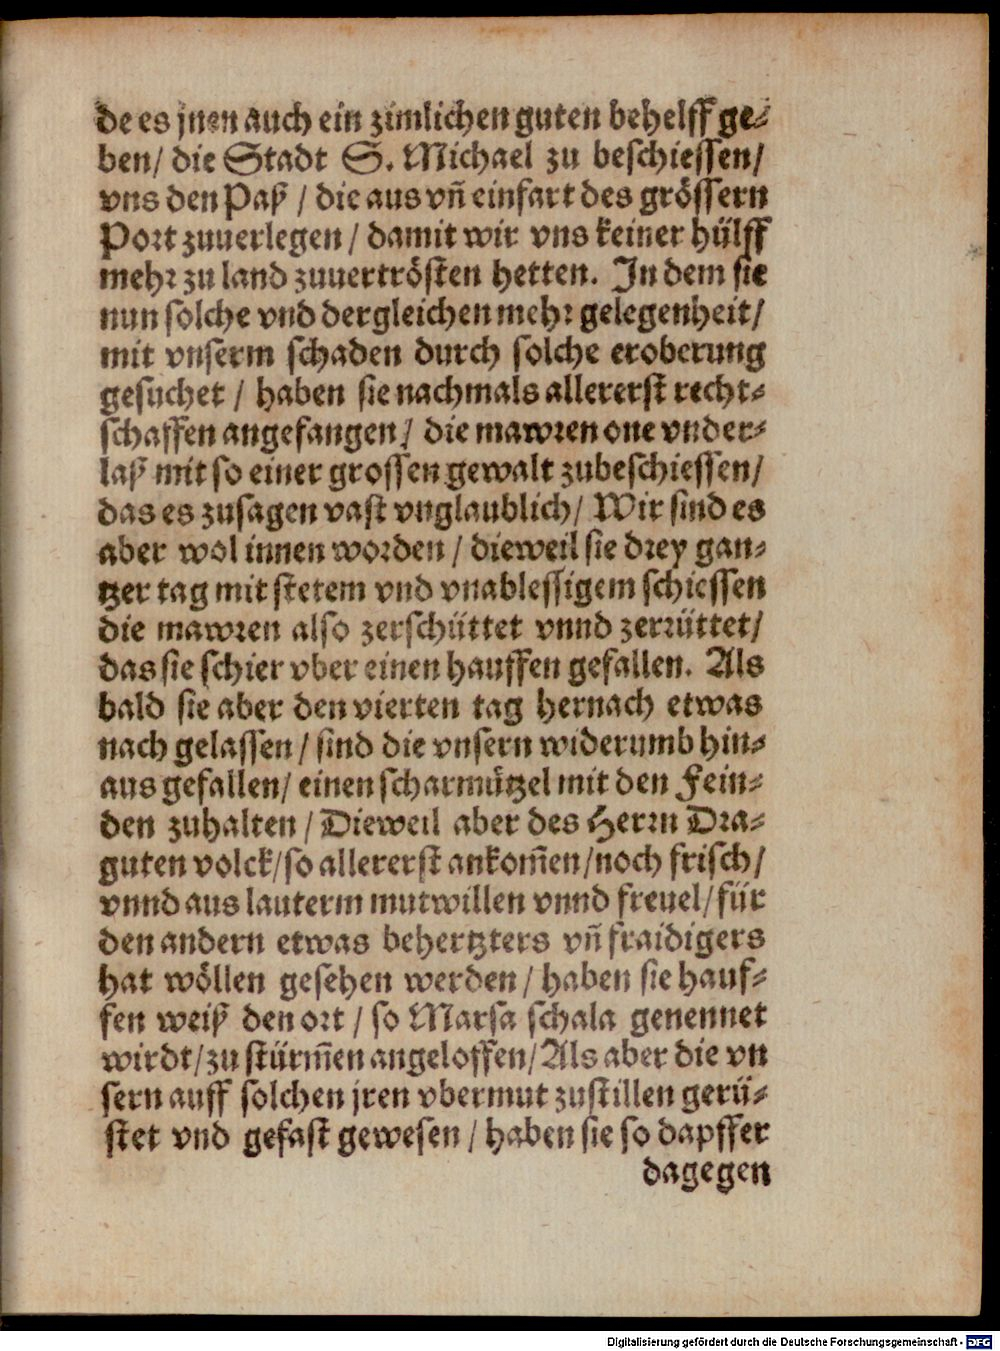 de es jnen auch ein zimlichen guten behelff ge⸗
ben/ die Stadt S. Michael zu beschiessen/
vns den Paß / die aus vñ einfart des grössern
Port zuuerlegen / damit wir vns keiner hülff
mehr zu land zuuertrösten hetten. In dem sie
nun solche vnd dergleichen mehr gelegenheit/
mit vnserm schaden durch solche eroberung
gesuchet / haben sie nachmals allererst recht⸗
schaffen angefangen / die mawren one vnder⸗
laß mit so einer grossen gewalt zubeschiessen/
das es zusagen vast vnglaublich/ Wir sind es
aber wol innen worden / dieweil sie drey gan⸗
tzer tag mit stetem vnd vnablessigem schiessen
die mawren also zerschüttet vnnd zerrüttet/
das sie schier vber einen hauffen gefallen. Als
bald sie aber den vierten tag hernach etwas
nach gelassen / sind die vnsern widerumb hin⸗
aus gefallen/ einen scharmützel mit den Fein⸗
den zuhalten / Dieweil aber des Herrn Dra⸗
guten volck/so allererst ankom̃en/noch frisch/
vnnd aus lauterm mutwillen vnnd freuel/für
den andern etwas behertzters vñ fraidigers
hat wöllen gesehen werden / haben sie hauf⸗
fen weiß den ort / so Marsa schala genennet
wirdt/zu stürm̃en angeloffen/Als aber die vn
sern auff solchen jren vbermut zustillen gerü⸗
stet vnd gefast gewesen / haben sie so dapffer
dagegen
Digitalisierung gefördert durch die Deutsche Forschungsgemeinschaft - DFG